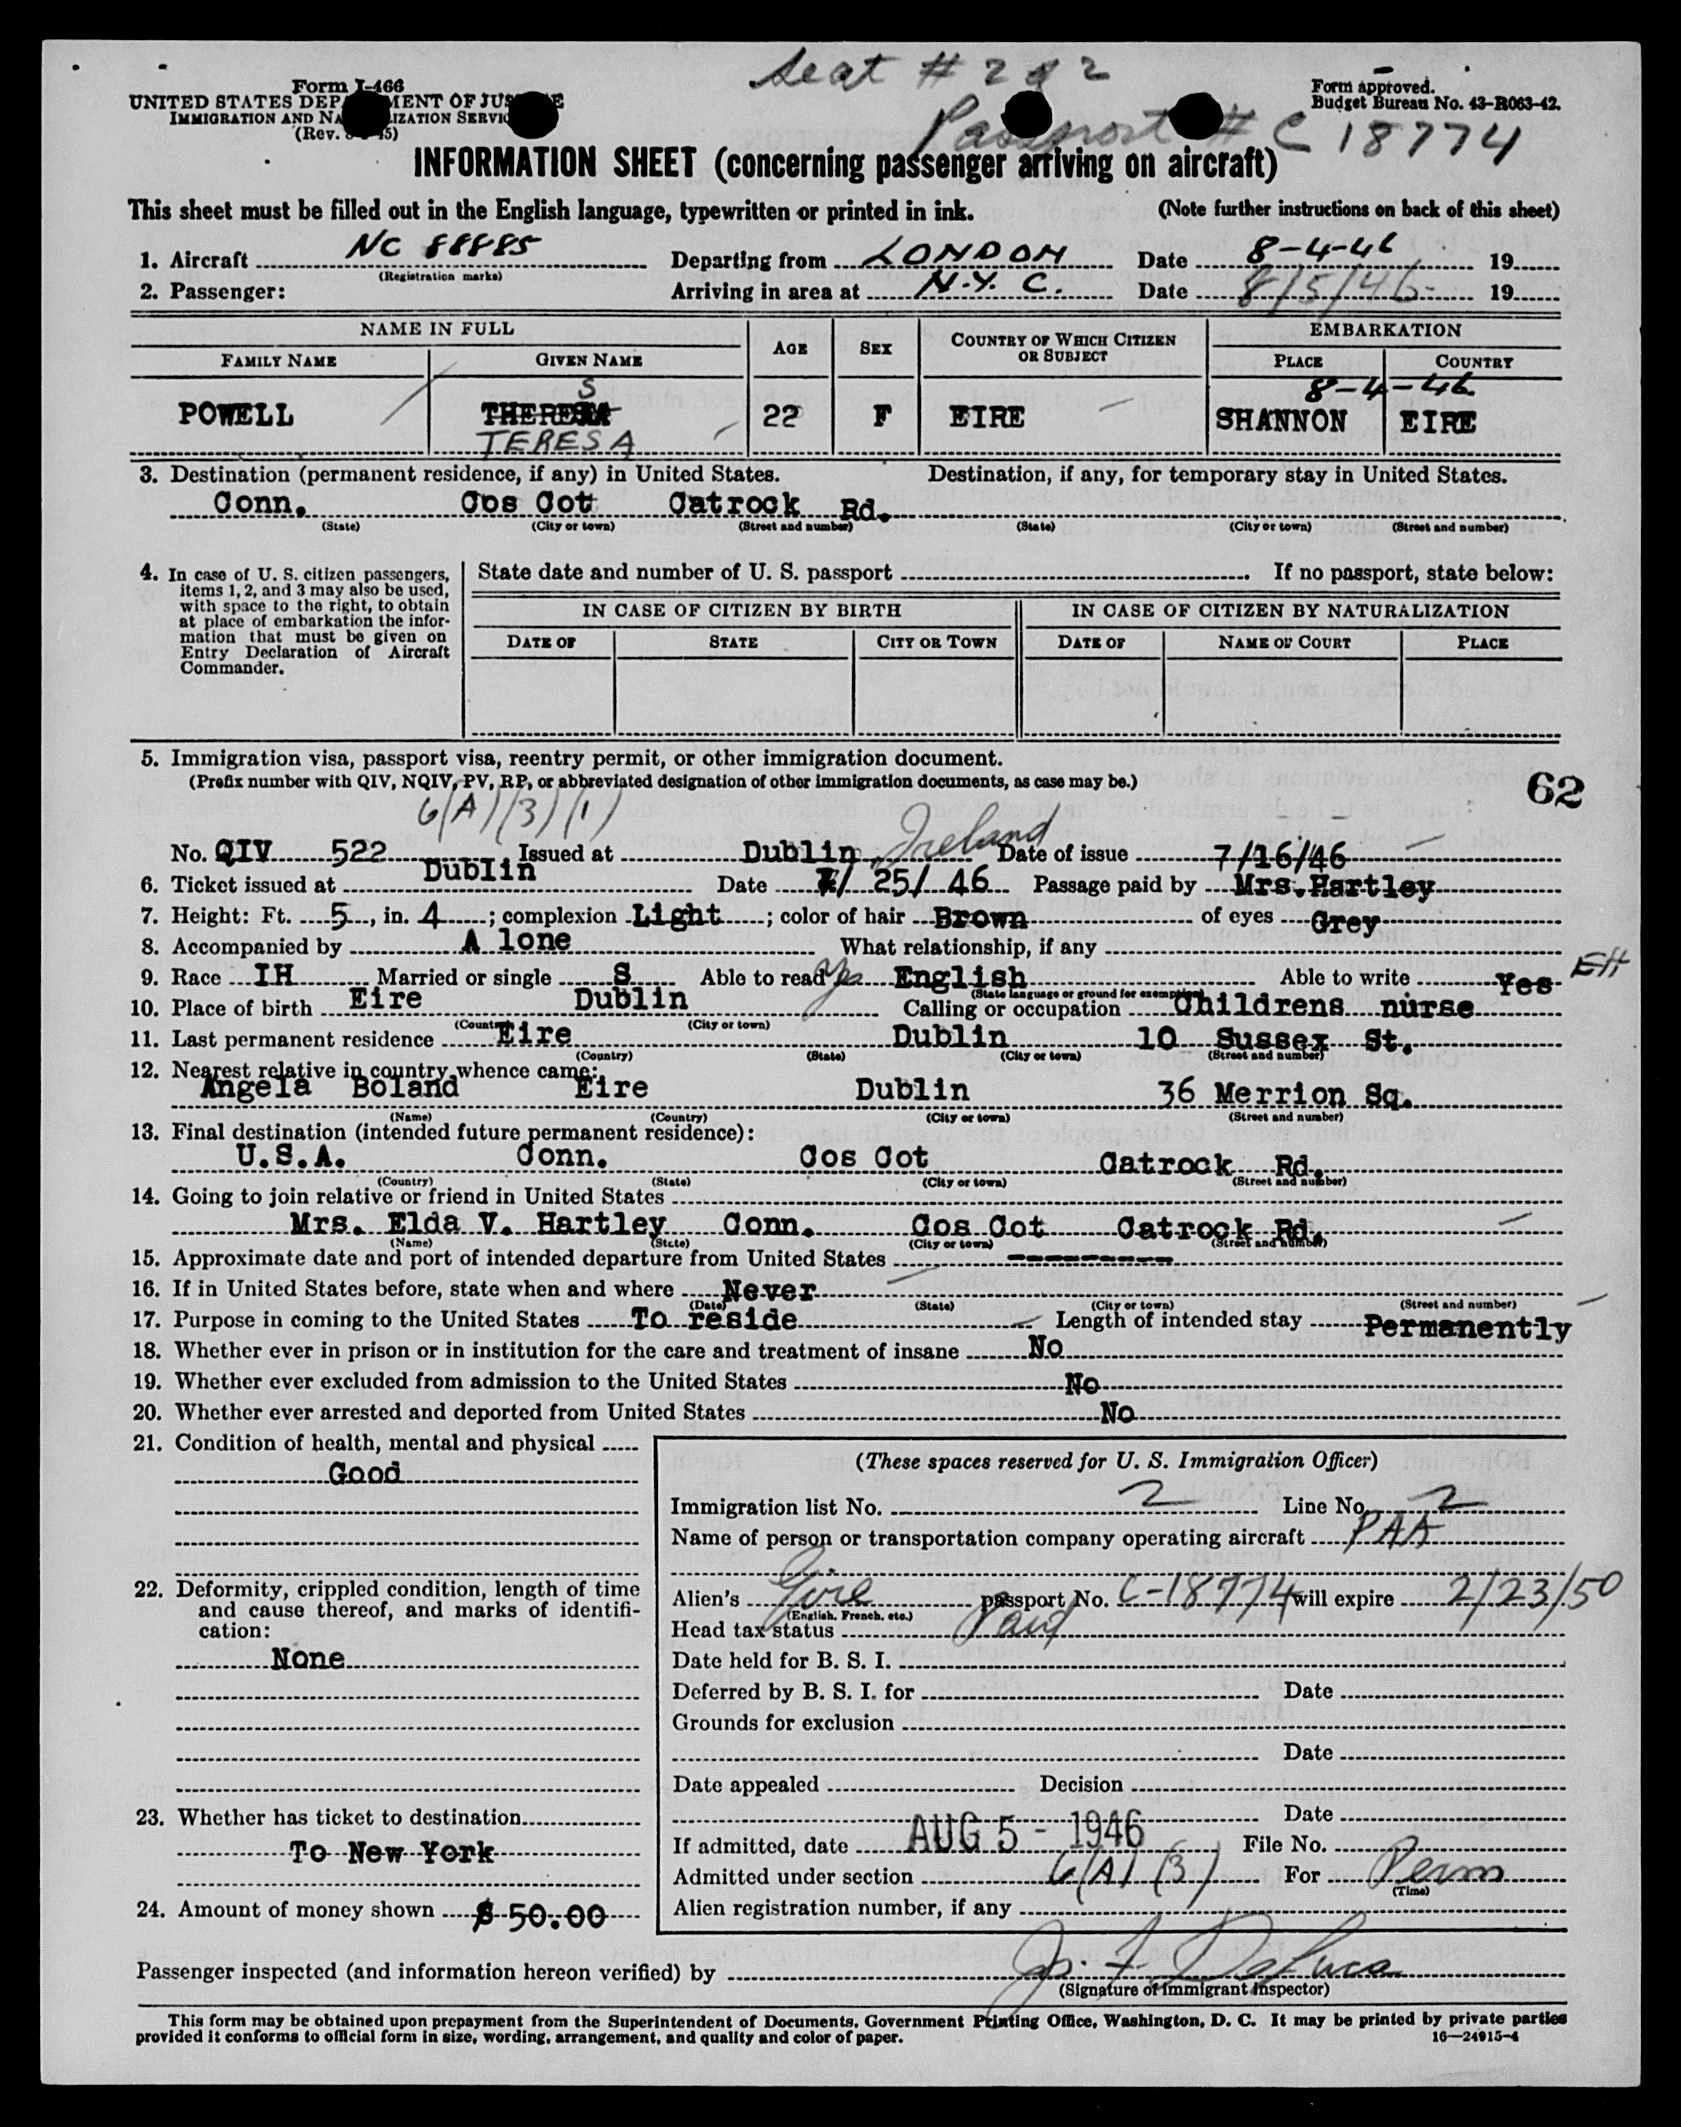 Seat # 2 & 2
Form I-466
UNITED STATES DEPARTMENT OF JUSTICE
IMMIGRATION AND NATURALIZATION SERVICE
(Rev. 45)
Form approved.
Budget Bureau No. 43-R063-42.
Passport # C 18774
INFORMATION SHEET (concerning passenger arriving on aircraft)
This sheet must be filled out in the English language, typewritten or printed in ink. (Note further instructions on back of this sheet)
1. Aircraft NC 88885 Departing from LONDON Date 8-4-46 19
(Registration marks)
2. Passenger: Arriving in area at N.Y.C. Date 8/5/46 19
NAME IN FULL AGE SEX COUNTRY OF WHICH CITIZEN OR SUBJECT EMBARKATION
FAMILY NAME GIVEN NAME PLACE COUNTRY
S 8-4-46
POWELL THERESA 22 F EIRE SHANNON EIRE
TERESA
3. Destination (permanent residence, if any) in United States. Destination, if any, for temporary stay in United States.
Conn. Cos Cot Catrock Rd.
(State) (City or town) (Street and number) (State) (City or town) (Street and number)
4. In case of U. S. citizen passengers, items 1, 2, and 3 may also be used, with space to the right, to obtain at place of embarkation the information that must be given on Entry Declaration of Aircraft Commander.
State date and number of U. S. passport . If no passport, state below:
IN CASE OF CITIZEN BY BIRTH IN CASE OF CITIZEN BY NATURALIZATION
DATE OF STATE CITY OR TOWN DATE OF NAME OF COURT PLACE
5. Immigration visa, passport visa, reentry permit, or other immigration document.
(Prefix number with QIV, NQIV, PV, RP, or abbreviated designation of other immigration documents, as case may be.)
62
6(A)(3)(1)
No. QIV 522 Issued at Dublin, Ireland Date of issue 7/16/46
6. Ticket issued at Dublin Date 7/ 25/ 46 Passage paid by Mrs. Hartley
7. Height: Ft. 5, in. 4; complexion Light; color of hair Brown of eyes Grey
8. Accompanied by A lone What relationship, if any
9. Race IH Married or single S Able to read Yes English Able to write Yes EH
(State language or ground for exemption)
10. Place of birth Eire Dublin Calling or occupation Childrens nurse
(Country) (City or town)
11. Last permanent residence Eire Dublin 10 Sussex St.
(Country) (State) (City or town) (Street and number)
12. Nearest relative in country whence came:
Angela Boland Eire Dublin 36 Merrion Sq.
(Name) (Country) (City or town) (Street and number)
13. Final destination (intended future permanent residence):
U.S.A. Conn. Cos Cot Catrock Rd.
(Country) (State) (City or town) (Street and number)
14. Going to join relative or friend in United States
Mrs. Elda V. Hartley Conn. Cos Cot Catrock Rd.
(Name) (State) (City or town) (Street and number)
15. Approximate date and port of intended departure from United States ---------
16. If in United States before, state when and where Never
(Date) (State) (City or town) (Street and number)
17. Purpose in coming to the United States To reside Length of intended stay Permanently
18. Whether ever in prison or in institution for the care and treatment of insane No
19. Whether ever excluded from admission to the United States No
20. Whether ever arrested and deported from United States No
21. Condition of health, mental and physical
Good
22. Deformity, crippled condition, length of time and cause thereof, and marks of identification:
None
23. Whether has ticket to destination
To New York
24. Amount of money shown $ 50.00
(These spaces reserved for U. S. Immigration Officer)
Immigration list No. 2 Line No. 2
Name of person or transportation company operating aircraft PAA
Alien's Eire passport No. C-18774 will expire 2/23/50
(English, French, etc.)
Head tax status Paid
Date held for B. S. I.
Deferred by B. S. I. for Date
Grounds for exclusion
Date
Date appealed Decision
Date
If admitted, date AUG 5 - 1946 File No.
Admitted under section 6(A)(3) For Perm
(Time)
Alien registration number, if any
Passenger inspected (and information hereon verified) by Jos. F. DeLuca
(Signature of Immigrant Inspector)
This form may be obtained upon prepayment from the Superintendent of Documents, Government Printing Office, Washington, D. C. It may be printed by private parties
provided it conforms to official form in size, wording, arrangement, and quality and color of paper. 16—24915-4